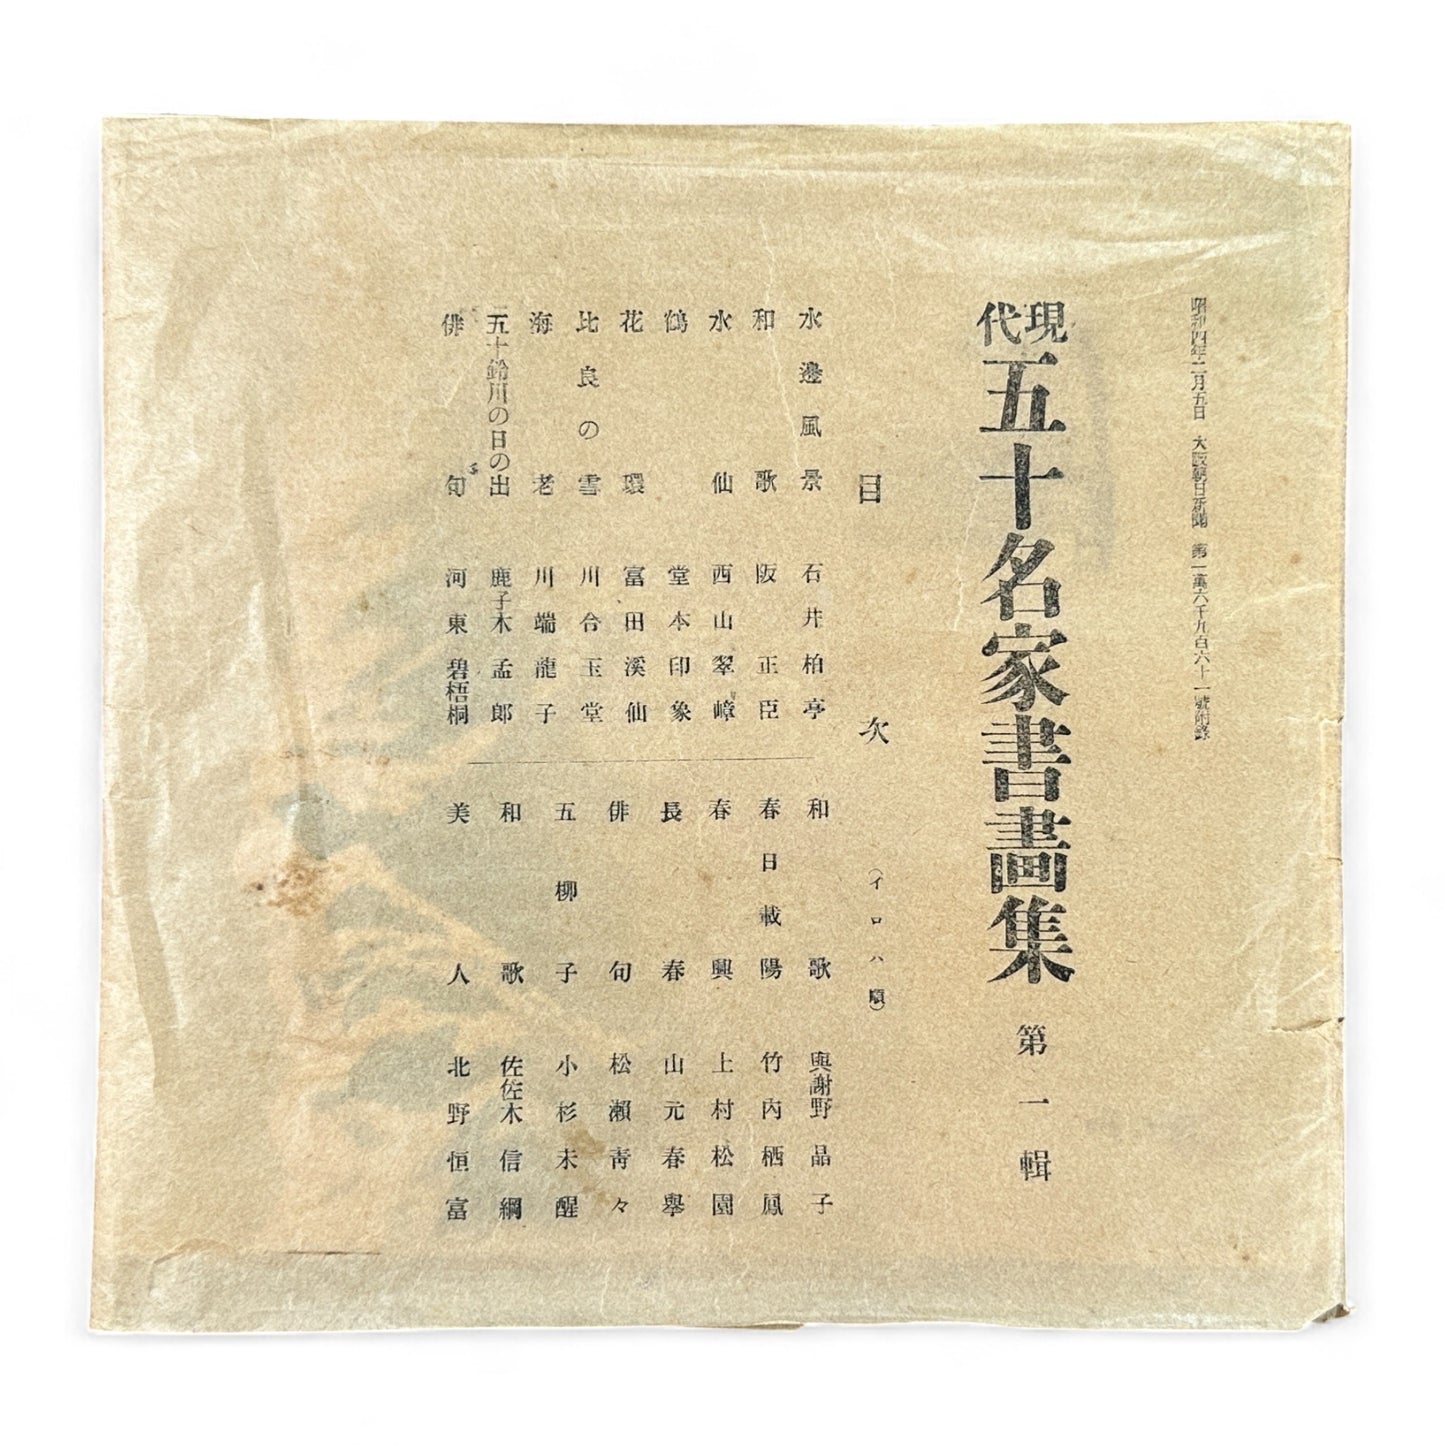 昭和四年二月五日 大阪朝日新聞 第一萬六千九百六十一號附錄
現代五十名家書畫集 第一輯
目次 (イロハ順)
水邊風景 石井柏亭
和歌 阪正臣
水仙 西山翠嶂
鶴 堂本印象
花環 富田溪仙
比良の雪 川合玉堂
海老 川端龍子
五十鈴川の日の出 鹿子木孟郎
俳句 河東碧梧桐
和歌 與謝野晶子
春日載陽 竹內栖鳳
春興 上村松園
長春 山元春擧
俳句 松瀨靑々
五柳子 小杉未醒
和歌 佐佐木信綱
美人 北野恒富